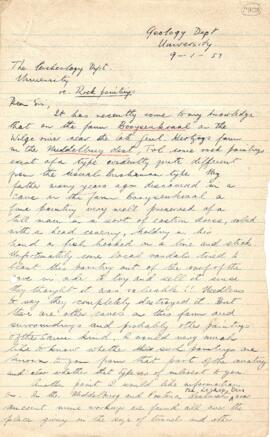 Geology Dept
University
9-1-51
The Archeology Dept.
University
re Rock paintings
Dear Sir,
It has recently come to my knowledge
that on the farm Boysenkraal on the
Wilge river near the late Genl Hertzog's farm
in the Middelburg dist. Tvl some rock paintings
exist of a type evidently quite different
from the usual bushman type. My
father many years ago discovered in a
cave on the farm Boysenkraal a
fine painting very well preserved of a
tall man in a sort of eastern dress, robed
with a head covering, holding in his
hand a fish hooked on a line and stick.
Unfortunately some local vandals tried to
blast this painting out of the roof of the
cave in order to try and sell it cause
they thought it was valuable!! Needless
to say they completely destroyed it. But
there are other caves on this farm and
surroundings and probably other paintings
of the same kind. I would very much
like to know whether this such paintings are
known to you from that part of the country
and also whether this type is of interest to you.
Another point I would like information
on. In the Middelburg and
ancient mine workings are found all over the
place giving in the way of tunnel and other